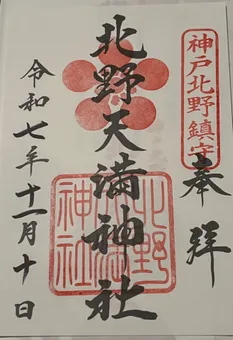 神戸北野鎮守
奉拝
北野天満神社
北野天満神社
令和七年十一月十日